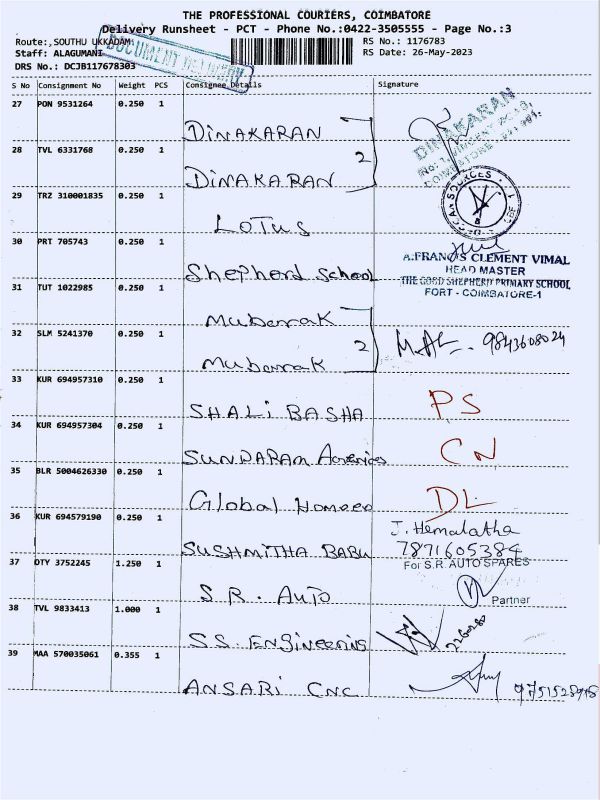 THE PROFESSIONAL COURIERS, COIMBATORE
Delivery Runsheet - PCT - Phone No.:0422-3505555 - Page No.:3
Route:,SOUTHU UKKADAM
Staff: ALAGUMANI
DRS No.: DCJB117678303
DOCUMENT DELIVERY
RS No.: 1176783
RS Date: 26-May-2023
S No Consignment No Weight PCS Consignee Details Signature
27 PON 9531264 0.250 1
DINAKARAN
28 TVL 6331768 0.250 1
DINAKARAN
2
DINAKARAN
29 TRZ 310001835 0.250 1
LOTUS
30 PRT 705743 0.250 1
Shepherd School
A.FRANCIS CLEMENT VIMAL
HEAD MASTER
THE GOOD SHEPHERD PRIMARY SCHOOL
FORT - COIMBATORE-1
31 TUT 1022985 0.250 1
Mubarrak
32 SLM 5241370 0.250 1
Mubarrak
2
9843608024
33 KUR 694957310 0.250 1
SHALI BASHA
PS
34 KUR 694957304 0.250 1
SUNDARAM
CN
35 BLR 5004626330 0.250 1
Global
DL
36 KUR 694579190 0.250 1
SUSHMITHA BABU
J. Hemalatha
7871605384
37 OTY 3752245 1.250 1
S.R. AUTO
For S.R. AUTO SPARES
Partner
38 TVL 9833413 1.000 1
S.S. Engineering
39 MAA 570035061 0.355 1
ANSARI CNC